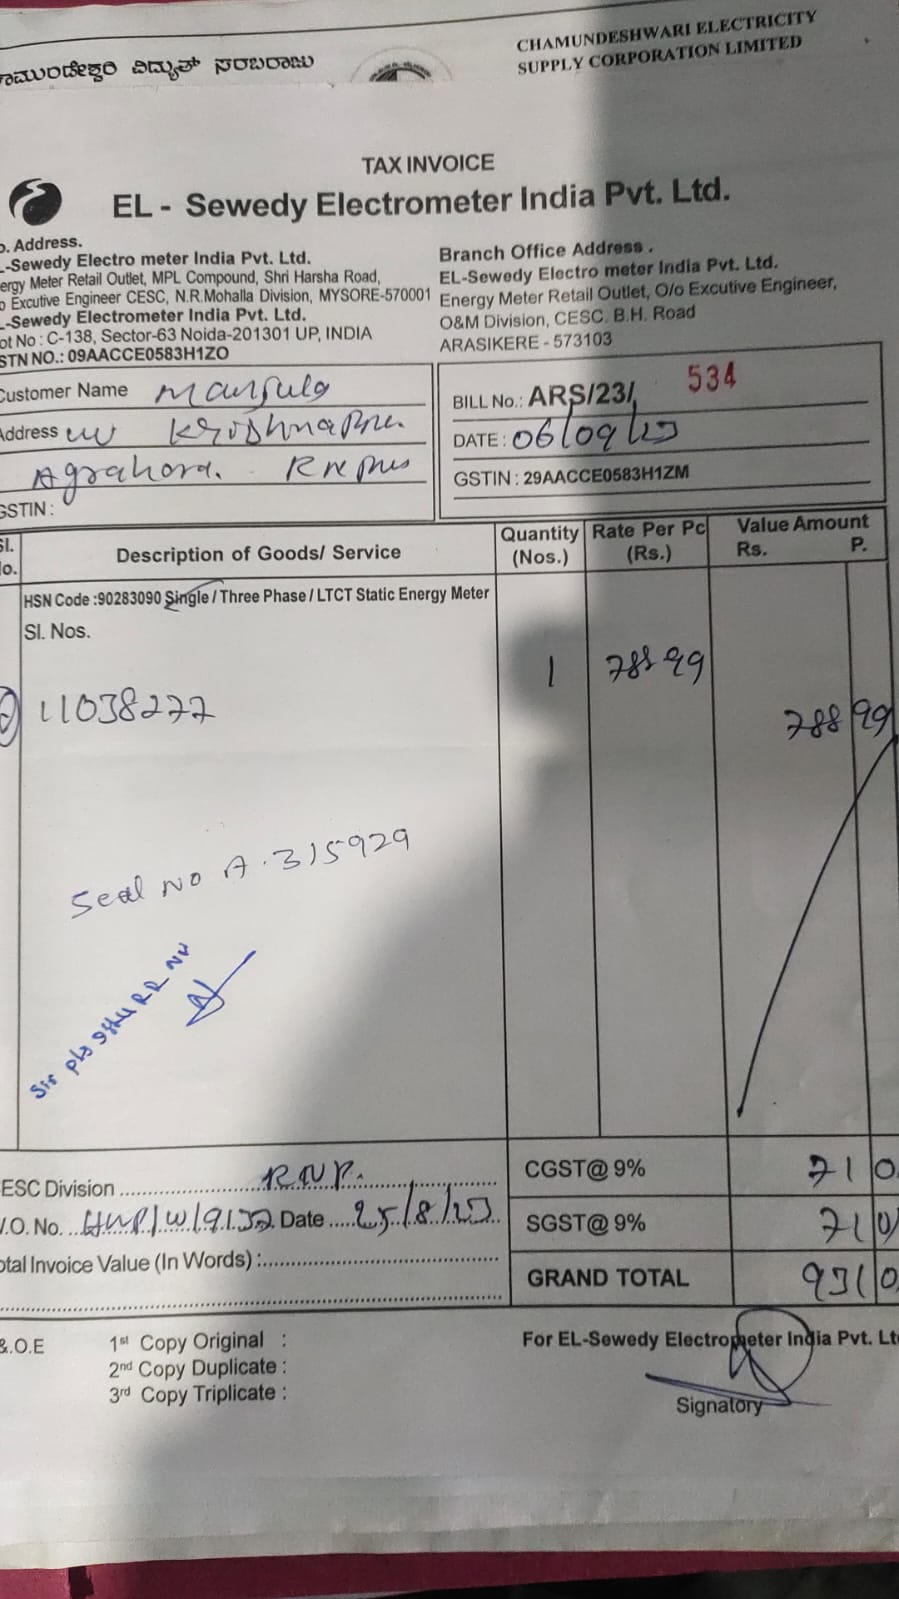 ಚಾಮುಂಡೇಶ್ವರಿ ವಿದ್ಯುತ್ ಸರಬರಾಜು
CHAMUNDESHWARI ELECTRICITY
SUPPLY CORPORATION LIMITED
TAX INVOICE
EL - Sewedy Electrometer India Pvt. Ltd.
o. Address.
L-Sewedy Electro meter India Pvt. Ltd.
ergy Meter Retail Outlet, MPL Compound, Shri Harsha Road,
o Excutive Engineer CESC, N.R.Mohalla Division, MYSORE-570001
L-Sewedy Electrometer India Pvt. Ltd.
ot No : C-138, Sector-63 Noida-201301 UP, INDIA
STN NO.: 09AACCE0583H1ZO
Branch Office Address .
EL-Sewedy Electro meter India Pvt. Ltd.
Energy Meter Retail Outlet, O/o Excutive Engineer,
O&M Division, CESC. B.H. Road
ARASIKERE - 573103
Customer Name Manjula
Address w/ Krishnappa.
Agrahara.
GSTIN :
BILL No.: ARS/23/ 534
DATE : 06/09/23
GSTIN : 29AACCE0583H1ZM
Sl. No. Description of Goods/ Service Quantity (Nos.) Rate Per Pc (Rs.) Value Amount Rs. P.
HSN Code :90283090 Single / Three Phase / LTCT Static Energy Meter
Sl. Nos.
1 788 99
11038277
788 99
Seal No A.315929
Sir pls RR No
ESC Division R.N.P.
CGST@ 9% 71 0
W.O. No. HNP/W/9132 Date 25/8/23
SGST@ 9% 71 0
otal Invoice Value (In Words) :
GRAND TOTAL 931 0
&.O.E
1st Copy Original :
2nd Copy Duplicate :
3rd Copy Triplicate :
For EL-Sewedy Electrometer India Pvt. Lt
Signatory